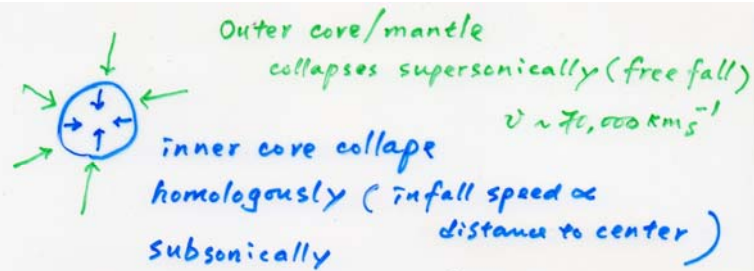 Outer core/mantle
collapses supersonically (free fall)
v ~ 70,000 km s⁻¹
inner core collape
homologously ( infall speed ∝
distance to center )
subsonically